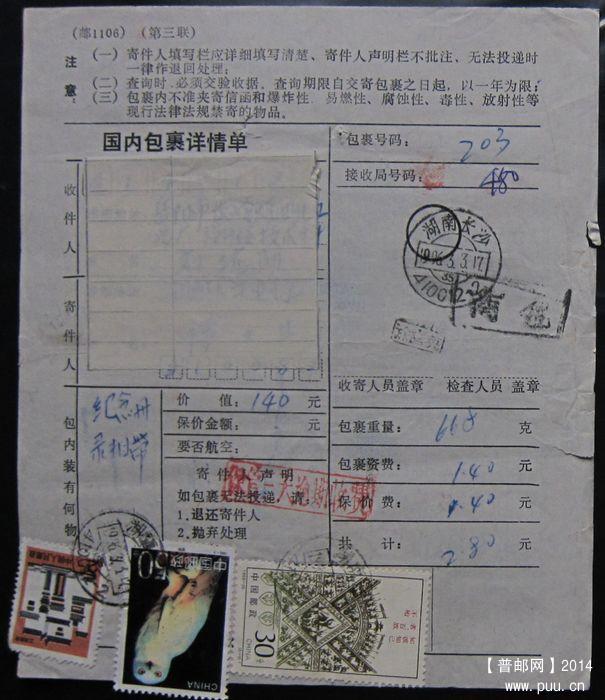 (邮1106) (第三联)
注意:
(一) 寄件人填写栏应详细填写清楚、寄件人声明栏不批注、无法投递时
一律作退回处理;
(二) 查询时,必须交验收据。查询期限自交寄包裹之日起，以一年为限;
(三) 包裹内不准夹寄信函和爆炸性、易燃性、腐蚀性、毒性、放射性等
现行法律法规禁寄的物品。
国内包裹详情单
包裹号码: 203
接收局号码: 480
收件人
寄件人
湖南长沙
1996.3.3.17
410012
收寄人员盖章 检查人员 盖章
包内装有何物
纪念册
录相带
价 值: 140 元
保价金额: 元
要否航空:
寄件人声明
如包裹无法投递，请
1.退还寄件人
2.抛弃处理
包裹重量: 668 克
包裹资费: 1.40 元
保价费: 1.40 元
共 计: 2.80 元
中国邮政
50
CHINA
中国邮政
CHINA
30分
【普邮网】2014
www.puu.cn